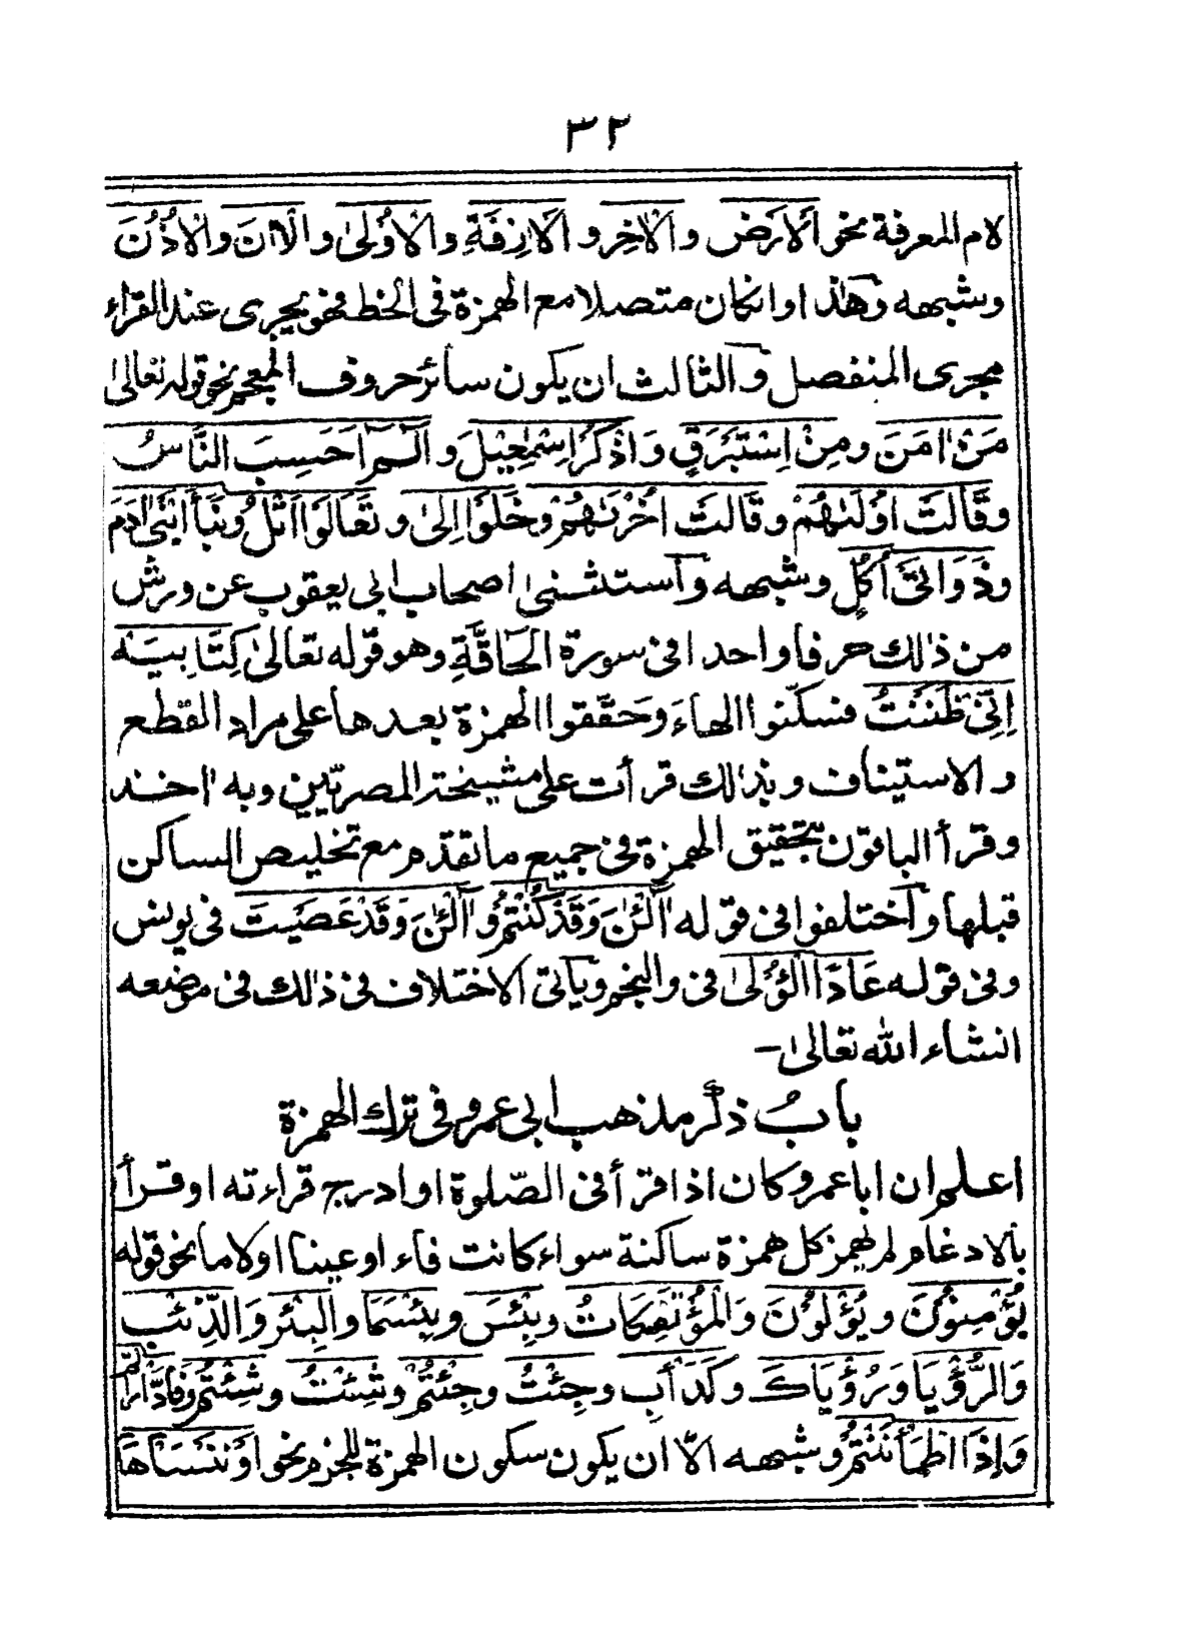 ٣٢
لام المعرفة نحو الارض والاخر و الازفة والاولى والان والاذن
وشبهه وهذا وانكان متصلا مع الهمزة فى الخط فهو يجرى عند القراء
مجرى المنفصل والثالث ان يكون سائر حروف المعجم نحو قوله تعالى
مَنْ اٰمَنَ ومِنْ اِسْتَبْرَقٍ وَاذْكُرْ اِسْمٰعِيْلَ و الٓمّٓ اَحَسِبَ النَّاسُ
وقَالَتْ اُوْلٰىهُمْ وقَالَتْ اُخْرٰىهُمْ وخَلَوْا اِلىٰ و تَعَالَوْا اَتْلُ ونَبَأَ ابْنَىْ اٰدَمَ
وذَوَاتَىْ اُكُلٍ وشبهه واستثنىٰ اصحاب ابى يعقوب عن ورش
من ذٰلك حرفا واحدا فى سورة الحَاقَّةِ وهو قوله تعالىٰ كِتَابِيَهْ
اِنِّىْ ظَنَنْتُ فسكّنوا الهاءَ وحَقّقوا الهمزة بعدها على مراد القطع
و الاستيناف وبذٰلك قرأت على مشيخة المصريّين وبه اٰخذ
وقرأ الباقون بتحقيق الهمزة فى جميع ما تقدّم مع تخليص الساكن
قبلها واختلفوا فى قوله اٰلْئٰنَ وَقَدْ كُنْتُمْ و اٰلْئٰنَ وَقَدْ عَصَيْتَ فى يونس
وفى قوله عَادًا الْاُوْلىٰ فى والنجم ويأتى الاختلاف فى ذٰلك فى موضعه
انشاء الله تعالىٰ–
بابُ ذكر مذهب ابى عمرو فى ترك الهمزة
اعلم ان اباعمرو كان اذا قرأ فى الصّلوة او ادرج قراءته او قرأ
بالادغام لم يهمز كل همزة ساكنة سواء كانت فاء او عينا او لاما نحو قوله
يُؤْمِنُوْنَ و يُؤْلُوْنَ وَالْمُؤْتَفِكَاتُ وبِئْسَ وبِئْسَمَا والبِئْرِ وَالذِّئْبِ
وَالرُّؤْيَا وَرُؤْيَاكَ وكَدَأْبِ وجِئْتُ وجِئْتُمْ وشِئْتُ وشِئْتُمْ وفَادَّارَأْتُمْ
وَاِذَا اطْمَأْنَنْتُمْ وشبهه الاّ ان يكون سكون الهمزة للجزم نحو اَوْنَنْسَأْهَا